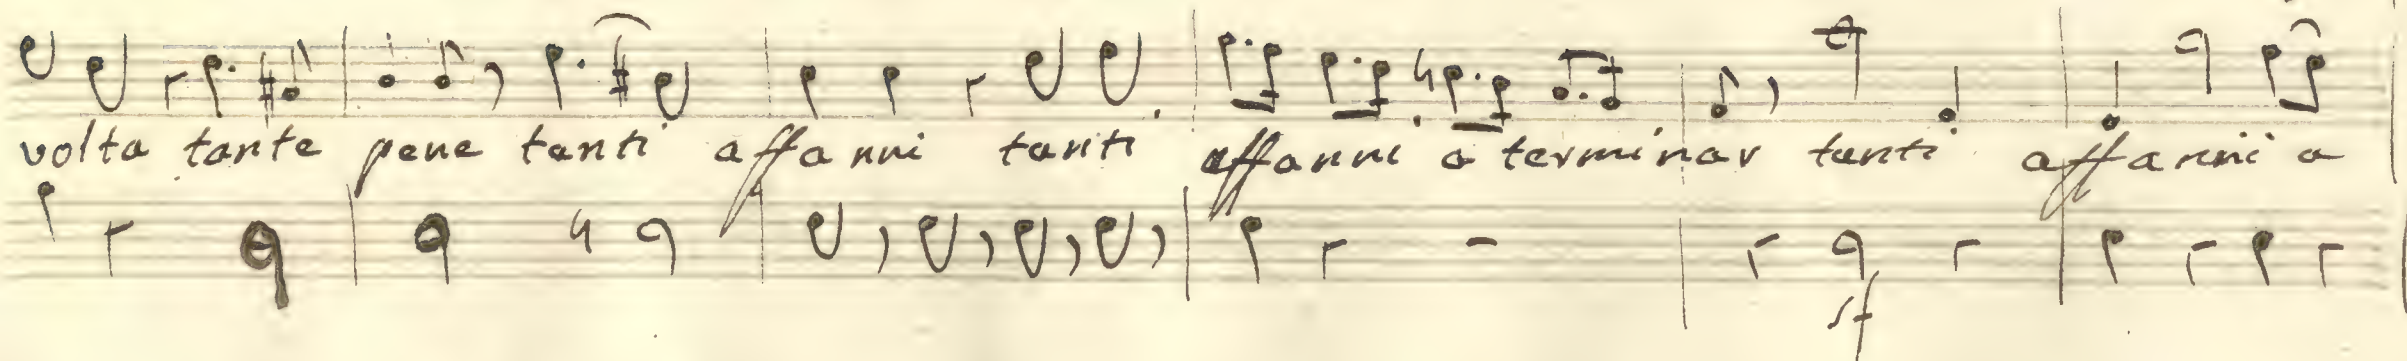 volta tante pene tanti affanni tanti affanni a terminar tanti affanni a
sf